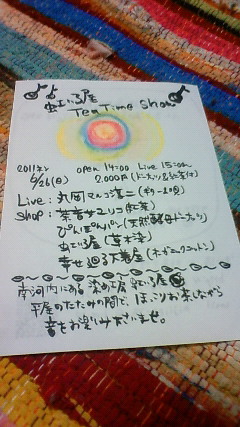 虹いろ屋
Tea Time Show
2011年 open 14:00 Live 15:00〜
6/26(日) 2,000円(ドーナツ&紅茶付)
Live: 丸岡マルコ淳二(ギター)
Shop: 茶音サユリコ(紅茶)
ぴんぽんパン(天然酵母ドーナツ)
虹いろ屋(草木染)
幸せ廻る下着屋(オーガニックコットン)
南河内にある染め工房 虹いろ屋
平屋のたたみの間で、ほっこりお茶しながら
音をお楽しみ下さいませ。